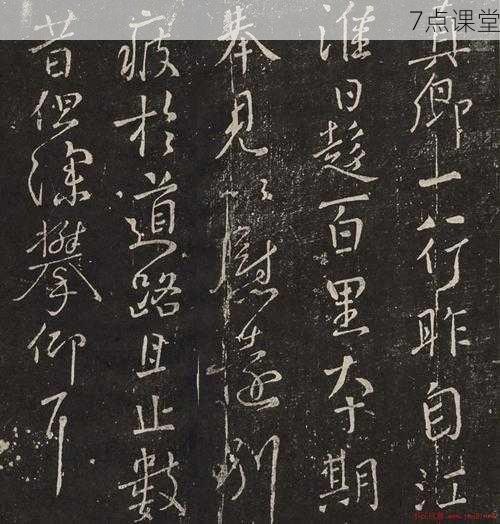 7点课堂
真卿一行昨自江
淮日趍百里本期
奉見以慰遠別
疲於道路且止數
昔但深攀仰